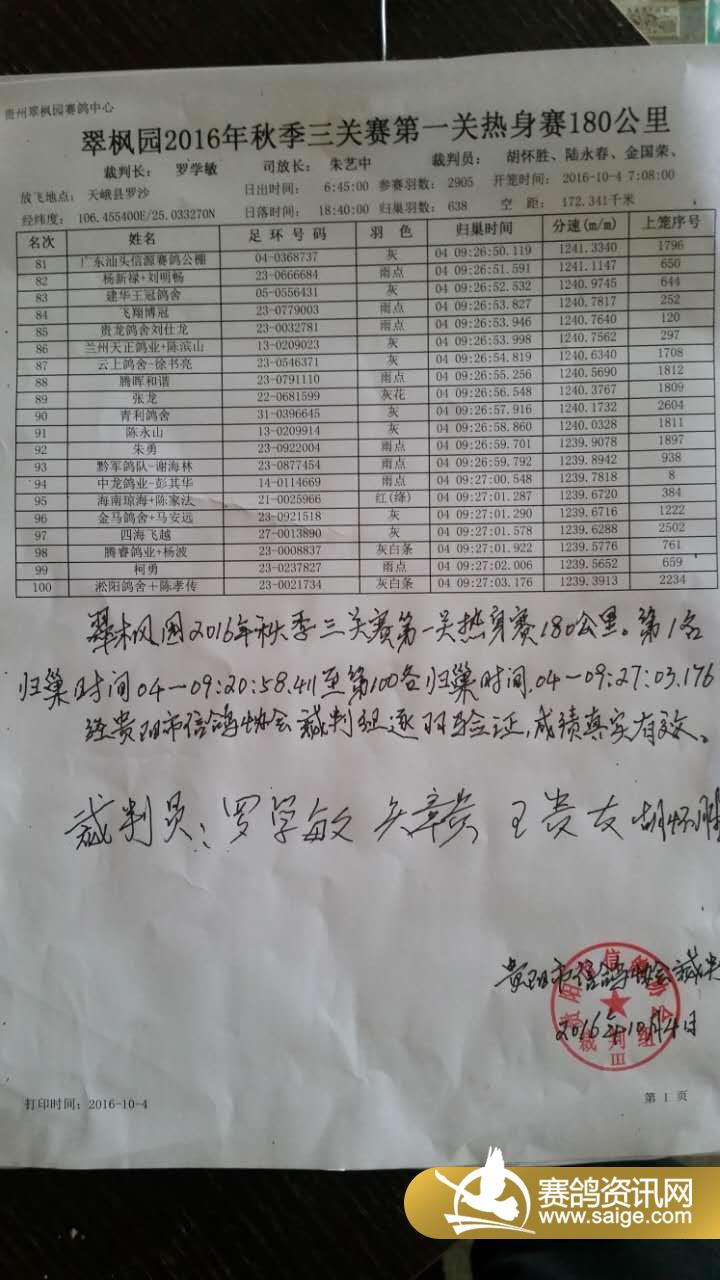 贵州翠枫园赛鸽中心
翠枫园2016年秋季三关赛第一关热身赛180公里
裁判长: 罗学敏 司放长: 朱艺中 裁判员: 胡怀胜、陆永春、金国荣、
放飞地点: 天峨县罗沙 日出时间: 6:45:00 参赛羽数: 2905 开笼时间: 2016-10-4 7:08:00
经纬度: 106.455400E/25.033270N 日落时间: 18:40:00 归巢羽数: 638 空 距: 172.341千米
名次 姓名 足环号码 羽色 归巢时间 分速(m/m) 上笼序号
81 广东汕头信源赛鸽公棚 04-0368737 灰 04 09:26:50.119 1241.3340 1796
82 杨新禄+刘明畅 23-0666684 雨点 04 09:26:51.591 1241.1147 650
83 建华王冠鸽舍 05-0556431 灰 04 09:26:52.532 1240.9745 644
84 飞翔博冠 23-0779003 雨点 04 09:26:53.827 1240.7817 252
85 贵龙鸽舍刘仕龙 23-0032781 雨点 04 09:26:53.946 1240.7640 120
86 兰州天正鸽业+陈滨山 13-0209023 灰 04 09:26:53.998 1240.7562 297
87 云上鸽舍-徐书亮 23-0546371 灰 04 09:26:54.819 1240.6340 1708
88 腾晖和谐 23-0791110 雨点 04 09:26:55.256 1240.5690 1812
89 张龙 22-0681599 灰花 04 09:26:56.548 1240.3767 1809
90 青利鸽舍 31-0396645 灰 04 09:26:57.916 1240.1732 2604
91 陈永山 13-0209914 灰 04 09:26:58.860 1240.0328 1811
92 朱勇 23-0922004 雨点 04 09:26:59.701 1239.9078 1897
93 黔军鸽队-谢海林 23-0877454 雨点 04 09:26:59.792 1239.8942 938
94 中龙鸽业-彭其华 14-0114669 雨点 04 09:27:00.548 1239.7818 8
95 海南琼海+陈家法 21-0025966 红(绛) 04 09:27:01.287 1239.6720 384
96 金马鸽舍+马安远 23-0921518 灰 04 09:27:01.290 1239.6716 1222
97 四海飞越 27-0013890 灰 04 09:27:01.578 1239.6288 2502
98 腾睿鸽业+杨波 23-0008837 灰白条 04 09:27:01.922 1239.5776 761
99 柯勇 23-0237827 雨点 04 09:27:02.006 1239.5652 659
100 淞阳鸽舍+陈孝传 23-0021734 灰白条 04 09:27:03.176 1239.3913 2234
翠枫园2016年秋季三关赛第一关热身赛180公里。第1名
归巢时间04-09:20:58.411至第100名归巢时间.04-09:27:03.176
经贵阳市信鸽协会裁判组逐羽验证,成绩真实有效。
裁判员: 罗学敏 王贵友 胡怀胜
贵阳市信鸽协会裁判
2016年10月4日
贵阳市信鸽协会
裁判组
III
打印时间: 2016-10-4 第 1 页
赛鸽资讯网
www.saige.com